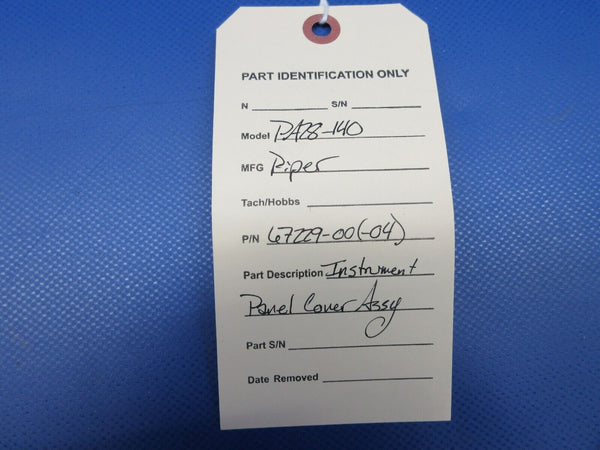 PART IDENTIFICATION ONLY
N ____________ S/N ____________
Model PA28-140
MFG Piper
Tach/Hobbs ____________
P/N 67229-00(-04)
Part Description Instrument
Panel Cover Assy
Part S/N ____________
Date Removed ____________